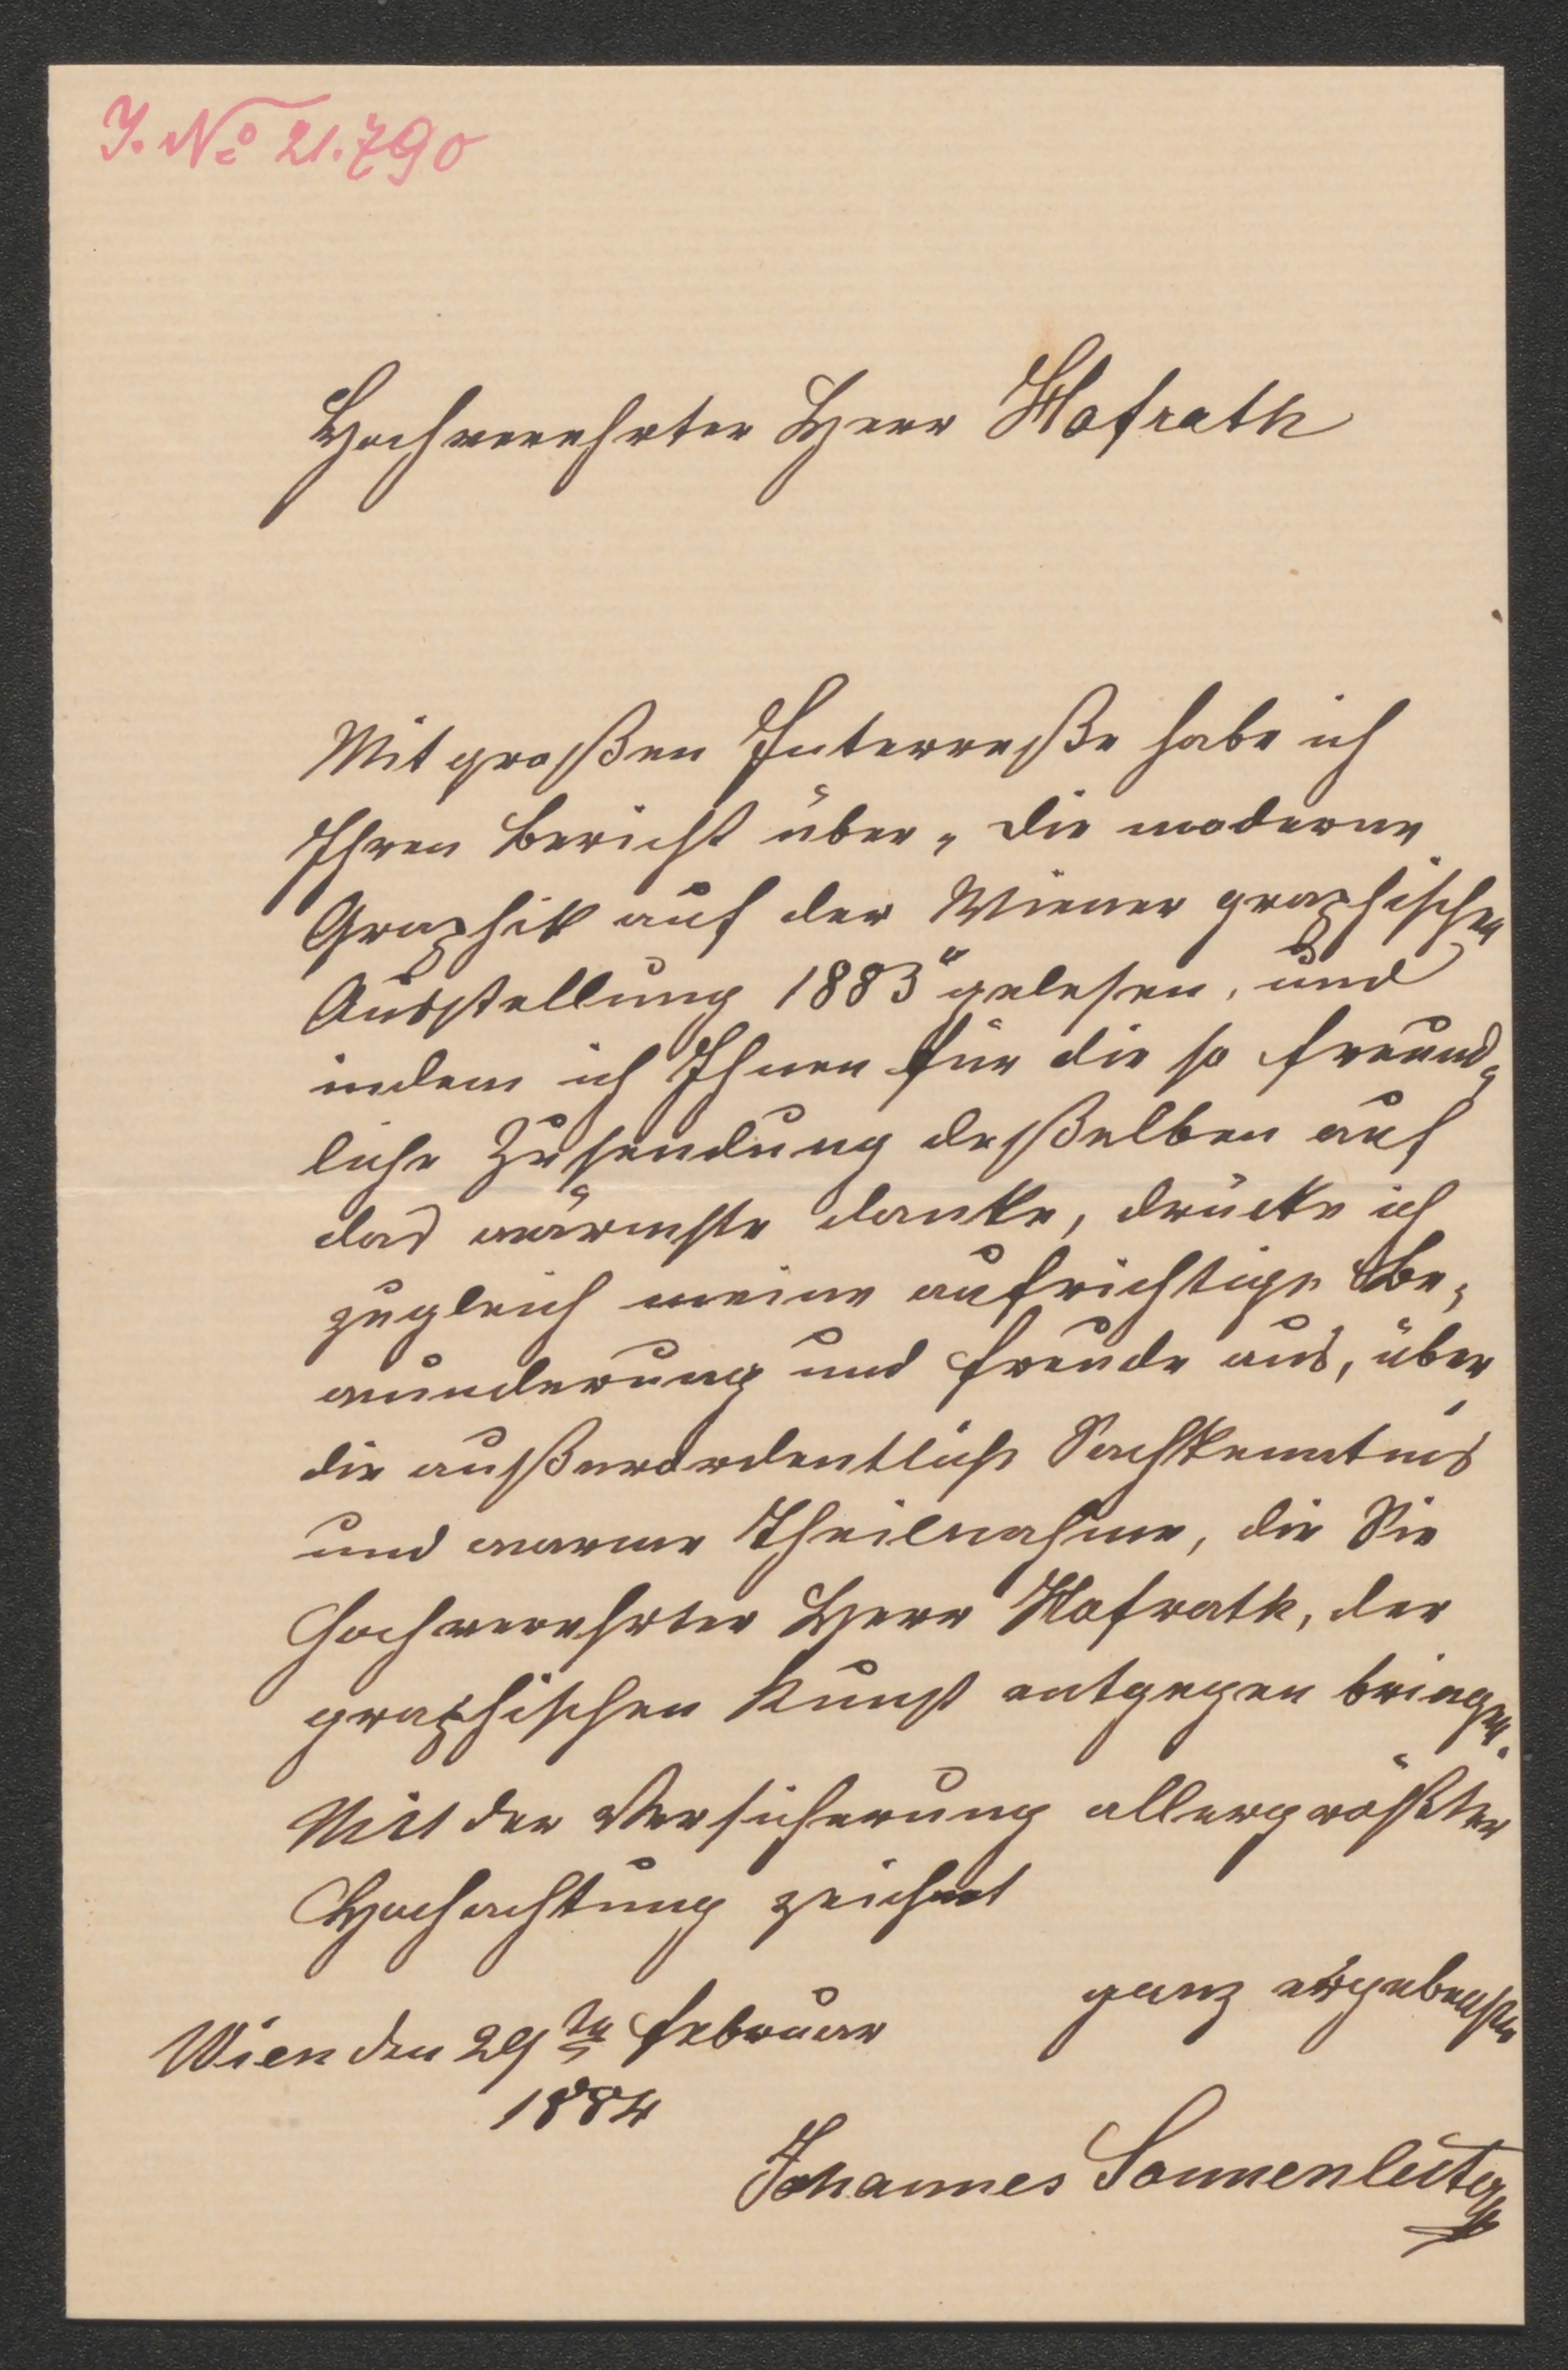 J. No 21.790
Hochverehrter Herr Hofrath
Mit großen Interreße habe ich
Ihren Bericht über „die moderne
Graphik auf der Wiener graphischen
Ausstellung 1883“ gelesen, und
indem ich Ihnen für die so freund-
liche Zusendung deßelben auf
das wärmste danke, drücke ich
zugleich meine aufrichtige Be-
wunderung und Freude aus, über
die außerordentlich Sachkenntnis
und warme Theilnahme, die Sie
hochverehrter Herr Hofrath, der
graphischen Kunst entgegen bringen.
Mit der Versicherung allergrößter
Hochachtung zeichnet
ganz ergebenster
Wien den 29ten Februar
1884
Johannes Sonnenleiter